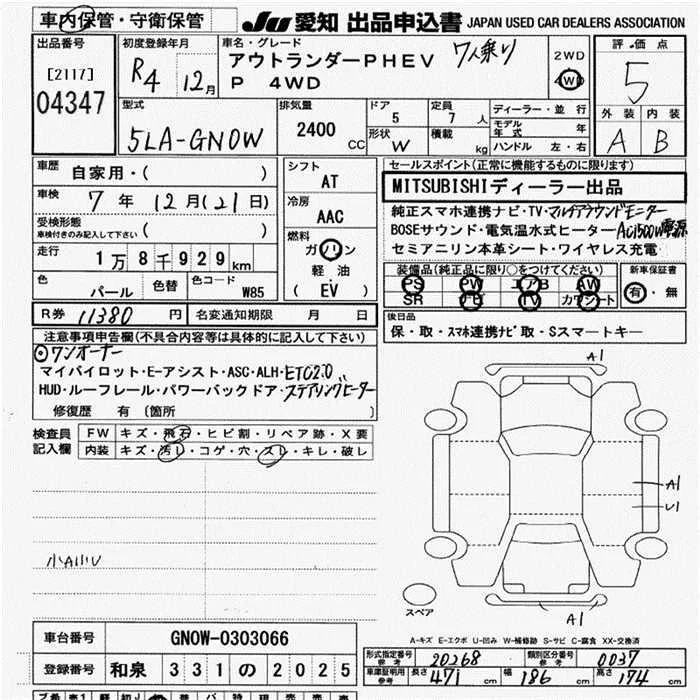 車内保管・守衛保管
JU 愛知 出品申込書 JAPAN USED CAR DEALERS ASSOCIATION
出品番号
[2117]
04347
初度登録年月
R4 12月
車名・グレード
アウトランダーPHEV 7人乗り
P 4WD
2WD
4WD
評価点
5
外装 内装
A B
型式
5LA-GN0W
排気量
2400 CC
ドア
5
形状
W
定員
7 人
積載
kg
ディーラー・並行
モデル年式 年
ハンドル 左・右
車歴 自家用・( )
車検 7年 12月(21日)
受検形態
車検付きのみ記入して下さい ( )
走行 1万8千929km
色 パール 色替 色コード W85
シフト
AT
冷房
AAC
燃料
ガソリン
軽油
(EV)
R券 11380円 名変通知期限 月 日
セールスポイント(正常に機能するものに限ります)
MITSUBISHIディーラー出品
純正スマホ連携ナビ・TV・マルチアラウンドモニター
BOSEサウンド・電気温水式ヒーター・AC1500W電源
セミアニリン本革シート・ワイヤレス充電
装備品(純正品に限り○をつけてください)
PS PW エアB AW
SR ナビ TV カワシート
新車保証書
有・無
後日品
保・取・スマホ連携ナビ取・Sスマートキー
注意事項申告欄(不具合内容等は具体的に記入して下さい)
◎ワンオーナー
マイパイロット・E-アシスト・ASC・ALH・ETC2.0
HUD・ルーフレール・パワーバックドア・ステアリングヒーター
修復歴 有 〔箇所 〕
検査員記入欄
FW キズ・飛石・ヒビ割・リペア跡・X要
内装 キズ・汚レ・コゲ・穴・スレ・キレ・破レ
小A小U
A1
A1
U1
A1
スペア
A-キズ E-エクボ U-凹み W-補修跡 S-サビ C-腐食 XX-交換済
車台番号 GN0W-0303066
登録番号 和泉 331 の 2025
形式指定番号 参考 20268 類別区分番号 参考 0037
車庫証明用 参考 長さ 471cm 幅 186cm 高さ 174cm